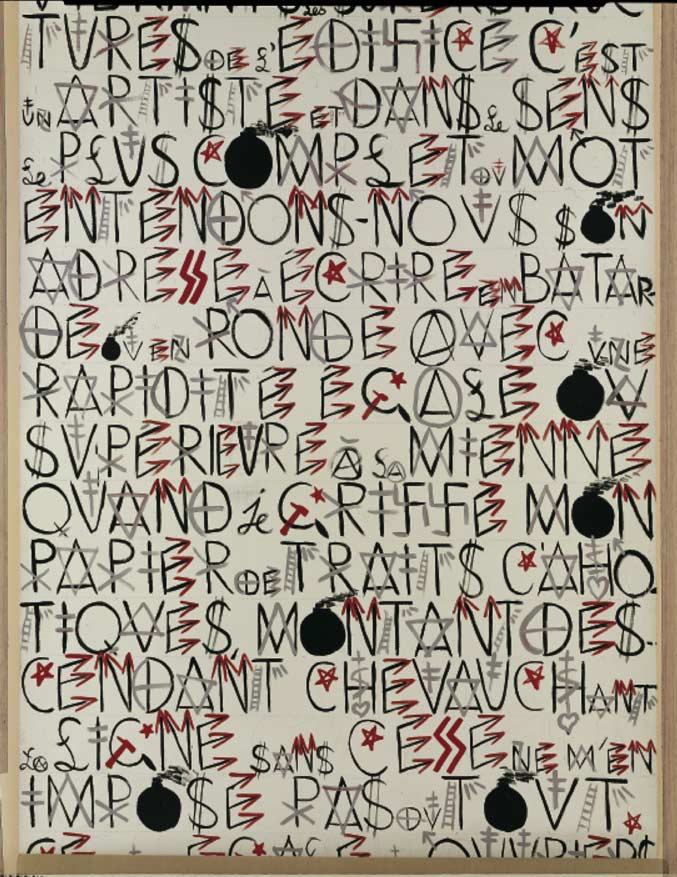 TURES DE L'ÉDIFICE C'EST
UN ARTISTE ET DANS LE SENS
LE PLUS COMPLET DU MOT
ENTENDONS-NOUS SON
ADRESSE À ÉCRIRE EN BATAR-
DE OU EN RONDE AVEC UNE
RAPIDITÉ ÉGALE OU
SUPÉRIEURE À LA MIENNE
QUAND JE GRIFFE MON
PAPIER DE TRAITS CAHO
TIQUES, MONTANT DES-
CENDANT CHEVAUCHANT
LA LIGNE SANS CESSE NE M'EN
IMPOSE PAS DU TOUT